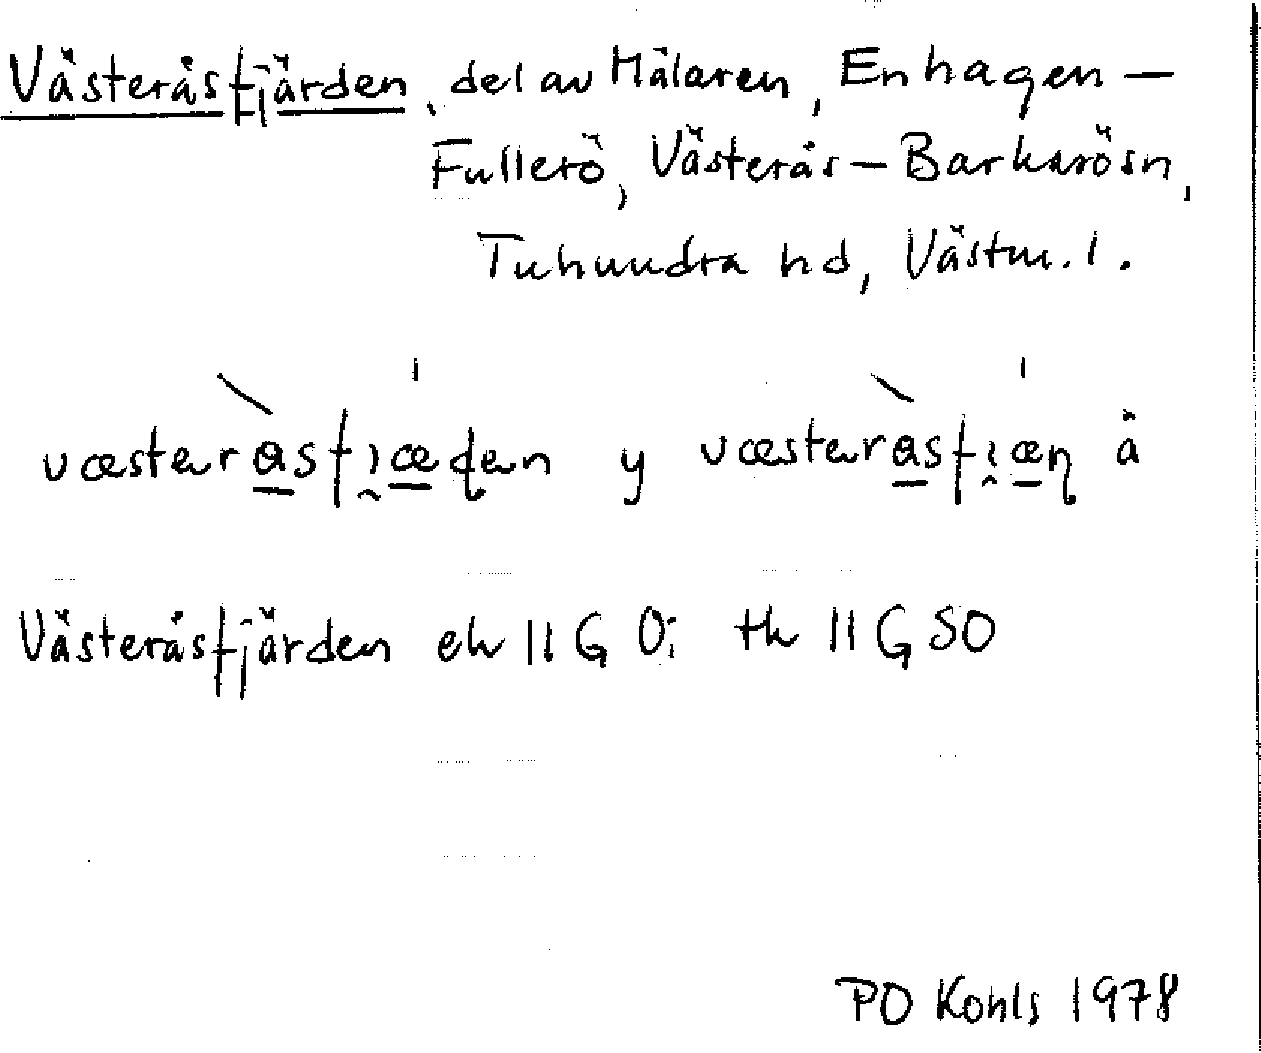 Västeråsfjärden, del av Mälaren, Enhagen –
Fullerö, Västerås – Barkarösn,
Tuhundra hd, Västm. l.
væsterasfı̯æɖen y væsterasfı̯æɳ å
Västeråsfjärden ek 11 G 0i tk 11 G SO
PO Kohls 1978